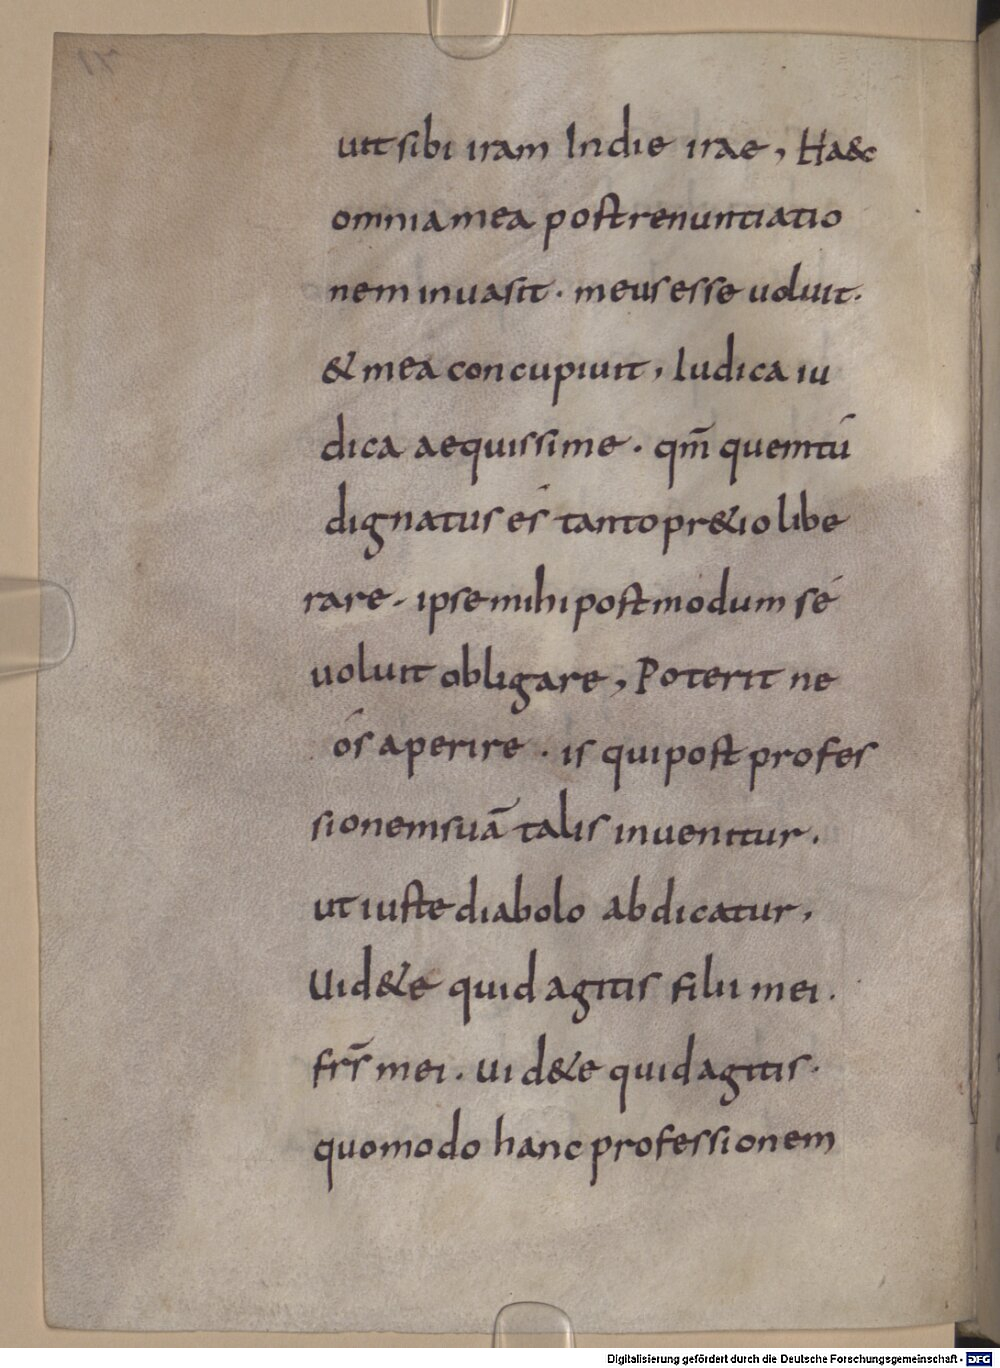 uit sibi iram In die irae, Haec
omnia mea post renuntiatio
nem inuasit. meus esse uoluit.
& mea concupiuit, Iudica iu
dica aequissime. qm̄ quem tú
dignatus és tanto pr&io libe
rare. ipse mihi postmodum sé
uoluit obligare, Poterit ne
ós aperire. is qui post profes
sionem suā talis inuenitur.
ut iuste diabolo abdicatur,
Uid&e quid agitis filii mei.
frs̄ mei. uid&e quid agitis.
quomodo hanc professionem
Digitalisierung gefördert durch die Deutsche Forschungsgemeinschaft - DFG